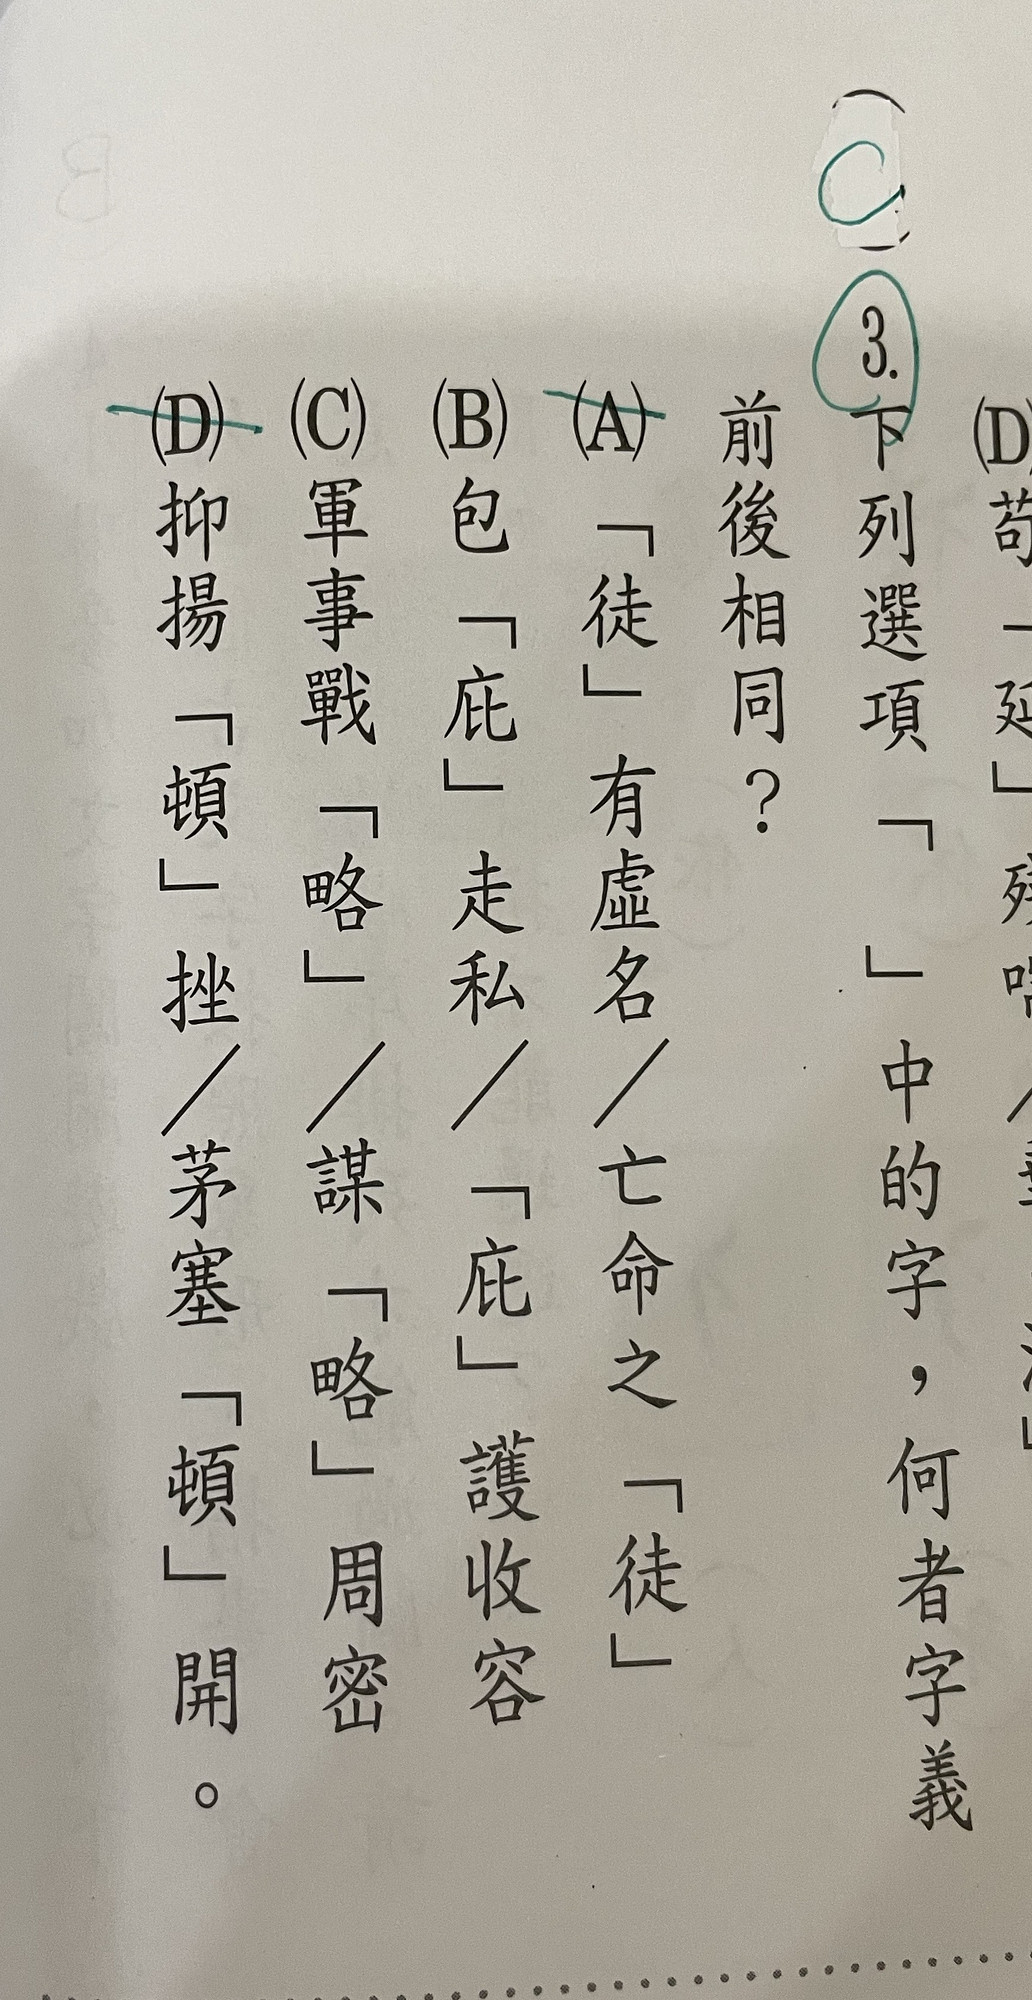 (C) 3. 下列選項「　」中的字，何者字義
前後相同？
(A)「徒」有虛名／亡命之「徒」
(B)包「庇」走私／「庇」護收容
(C)軍事戰「略」／謀「略」周密
(D)抑揚「頓」挫／茅塞「頓」開。